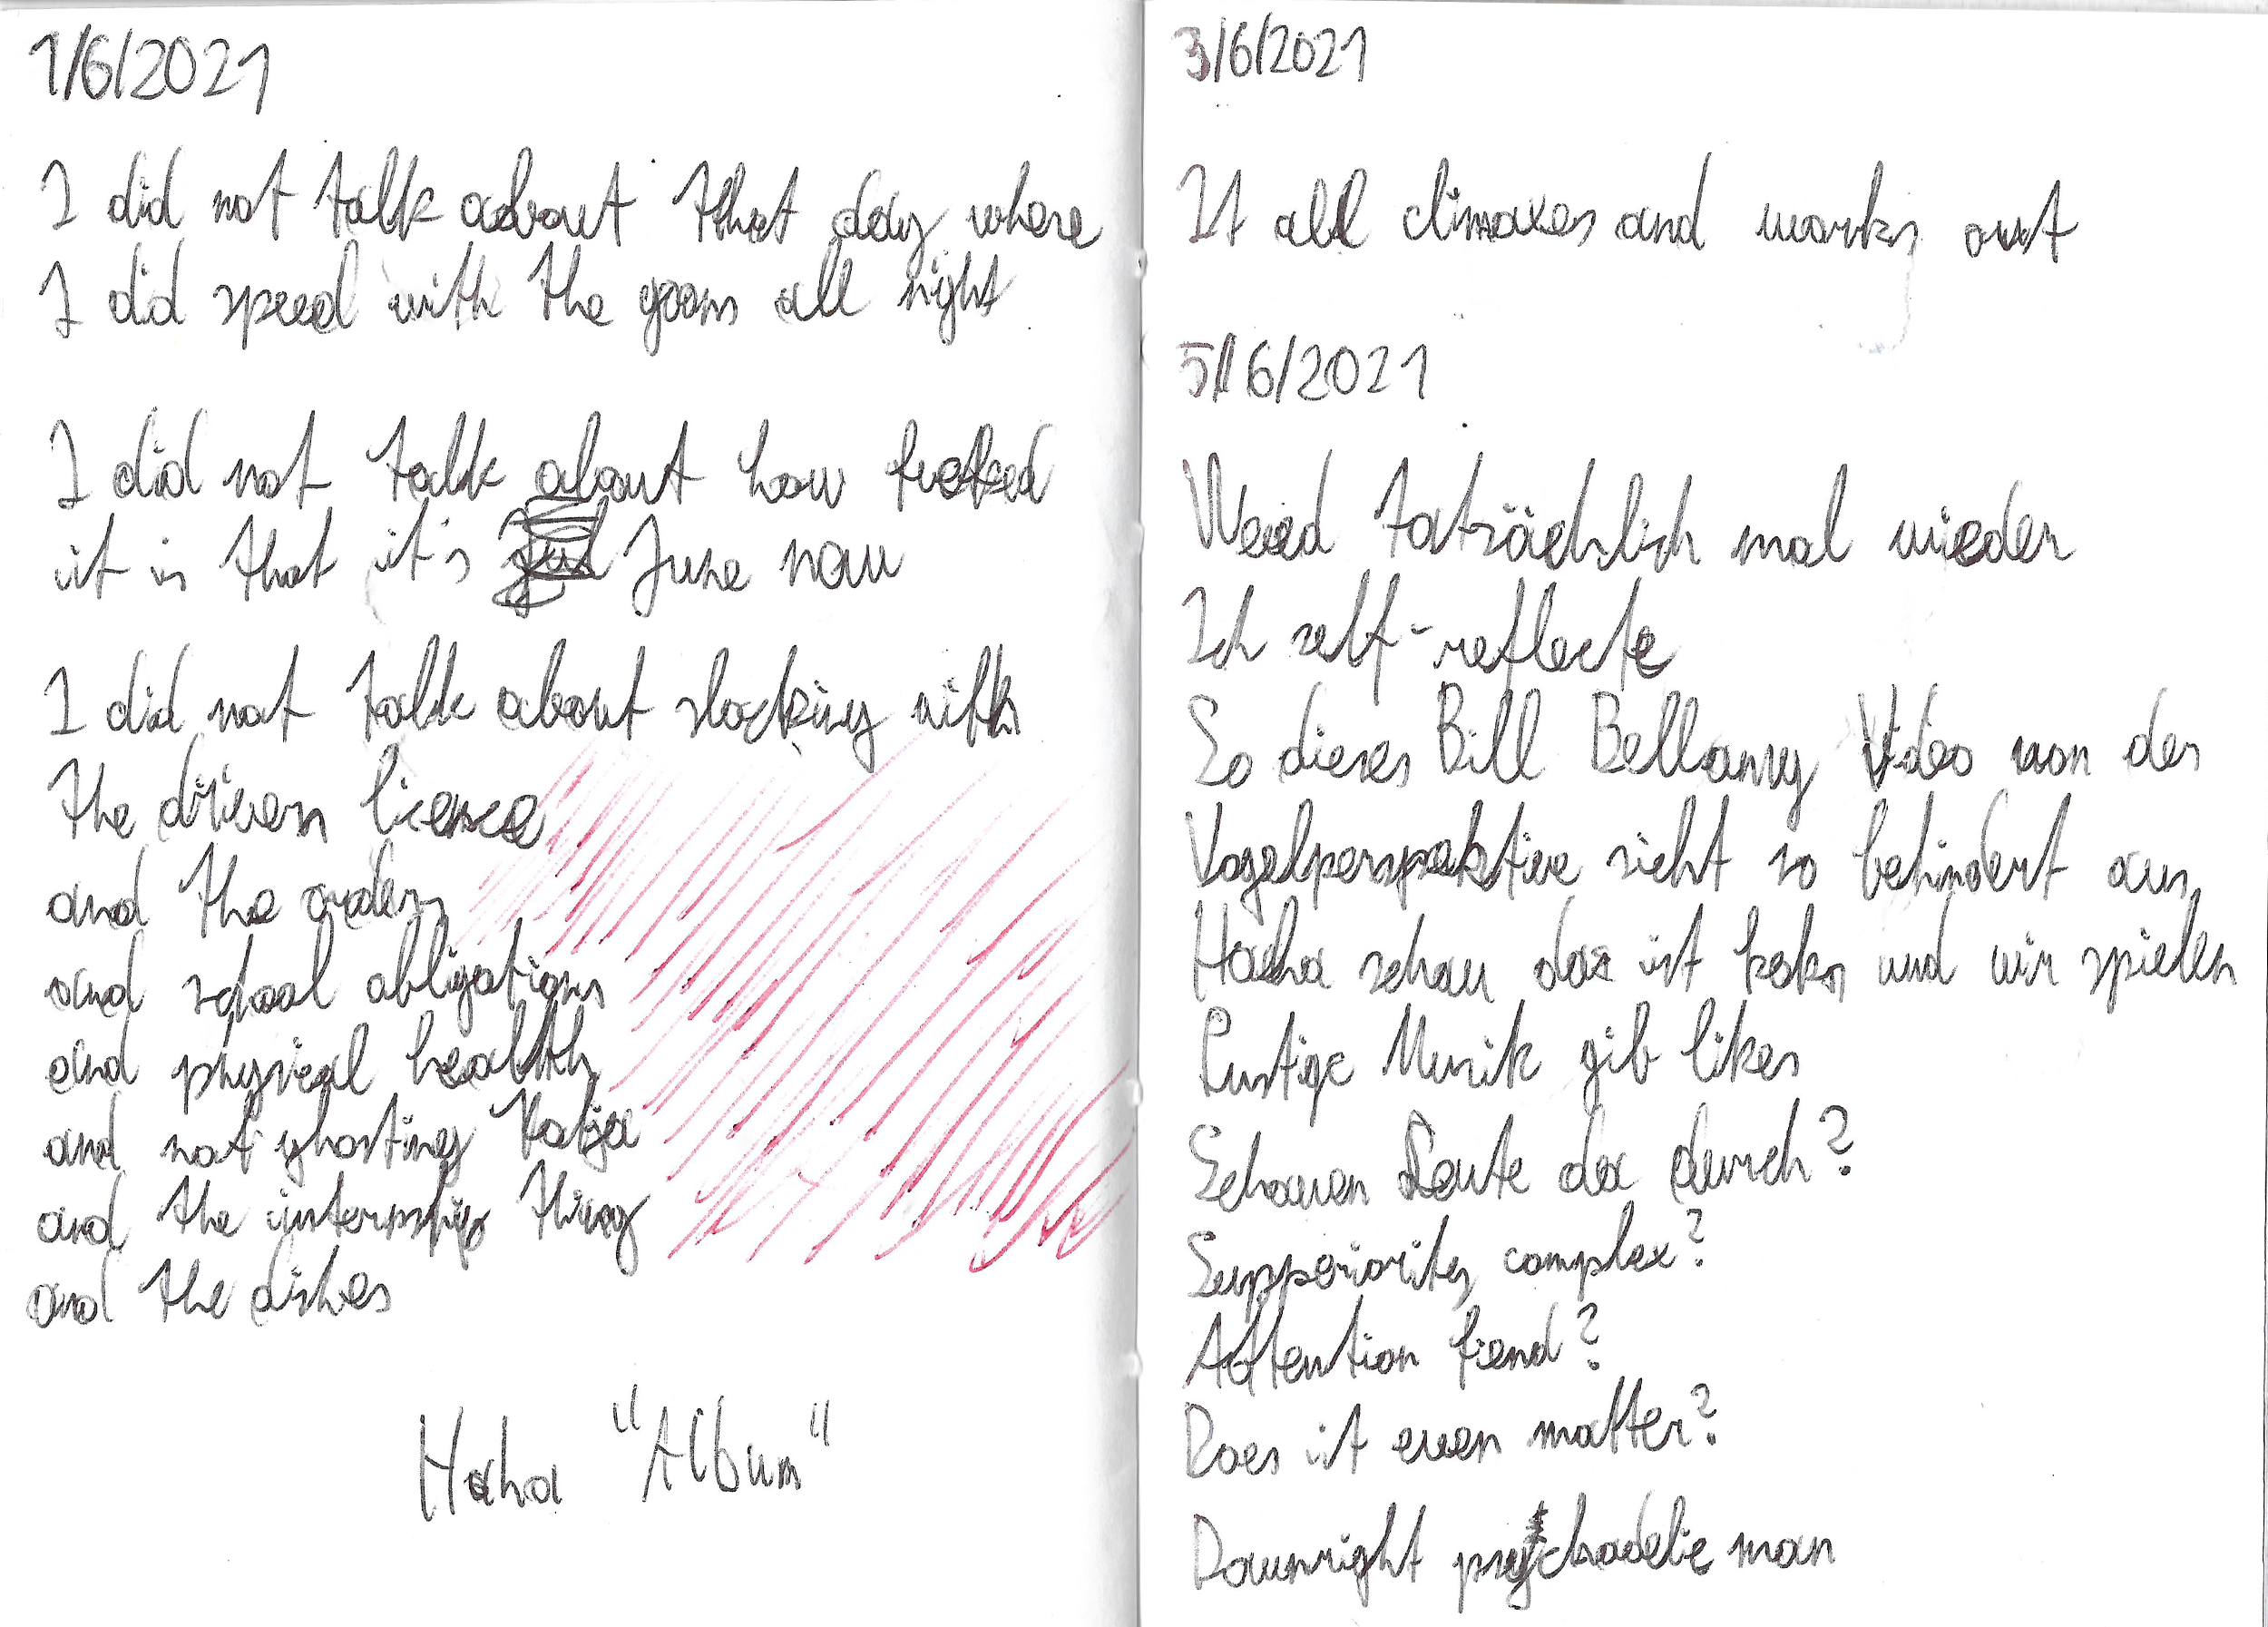 1/6/2021
I did not talk about that day where
I did speed with the goons all night
I did not talk about how fucked
it is that it's Jul June now
I did not talk about slacking with
the drivers licence
and the orders
and school obligations
and physical health
and not ghosting Katja
and the internship thing
and the dishes
Haha "Album"
3/6/2021
It all climaxes and works out
5/6/2021
Weed tatsächlich mal wieder
Ich self-reflecte
So dieses Bill Bellamy Video von der
Vogelperspektive sieht so behindert aus,
Haha schau das ist koks und wir spielen
Lustige Musik gib likes
Schauen Leute da durch?
Supperiority complex?
Attention fiend?
Does it even matter?
Downright psychadelic man